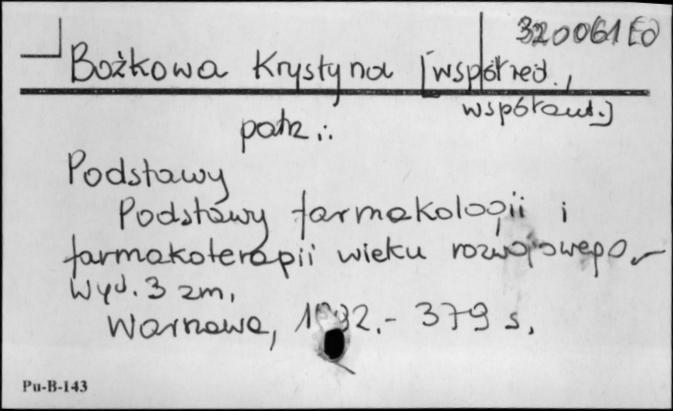 320061 EO
Bożkowa Krystyna [współred.,
współaut.]
patrz:
Podstawy
Podstawy farmakologii i
farmakoterapii wieku rozwojowego.-
Wyd. 3 zm.
Warszawa, 1992.- 379 s.
Pu-B-143